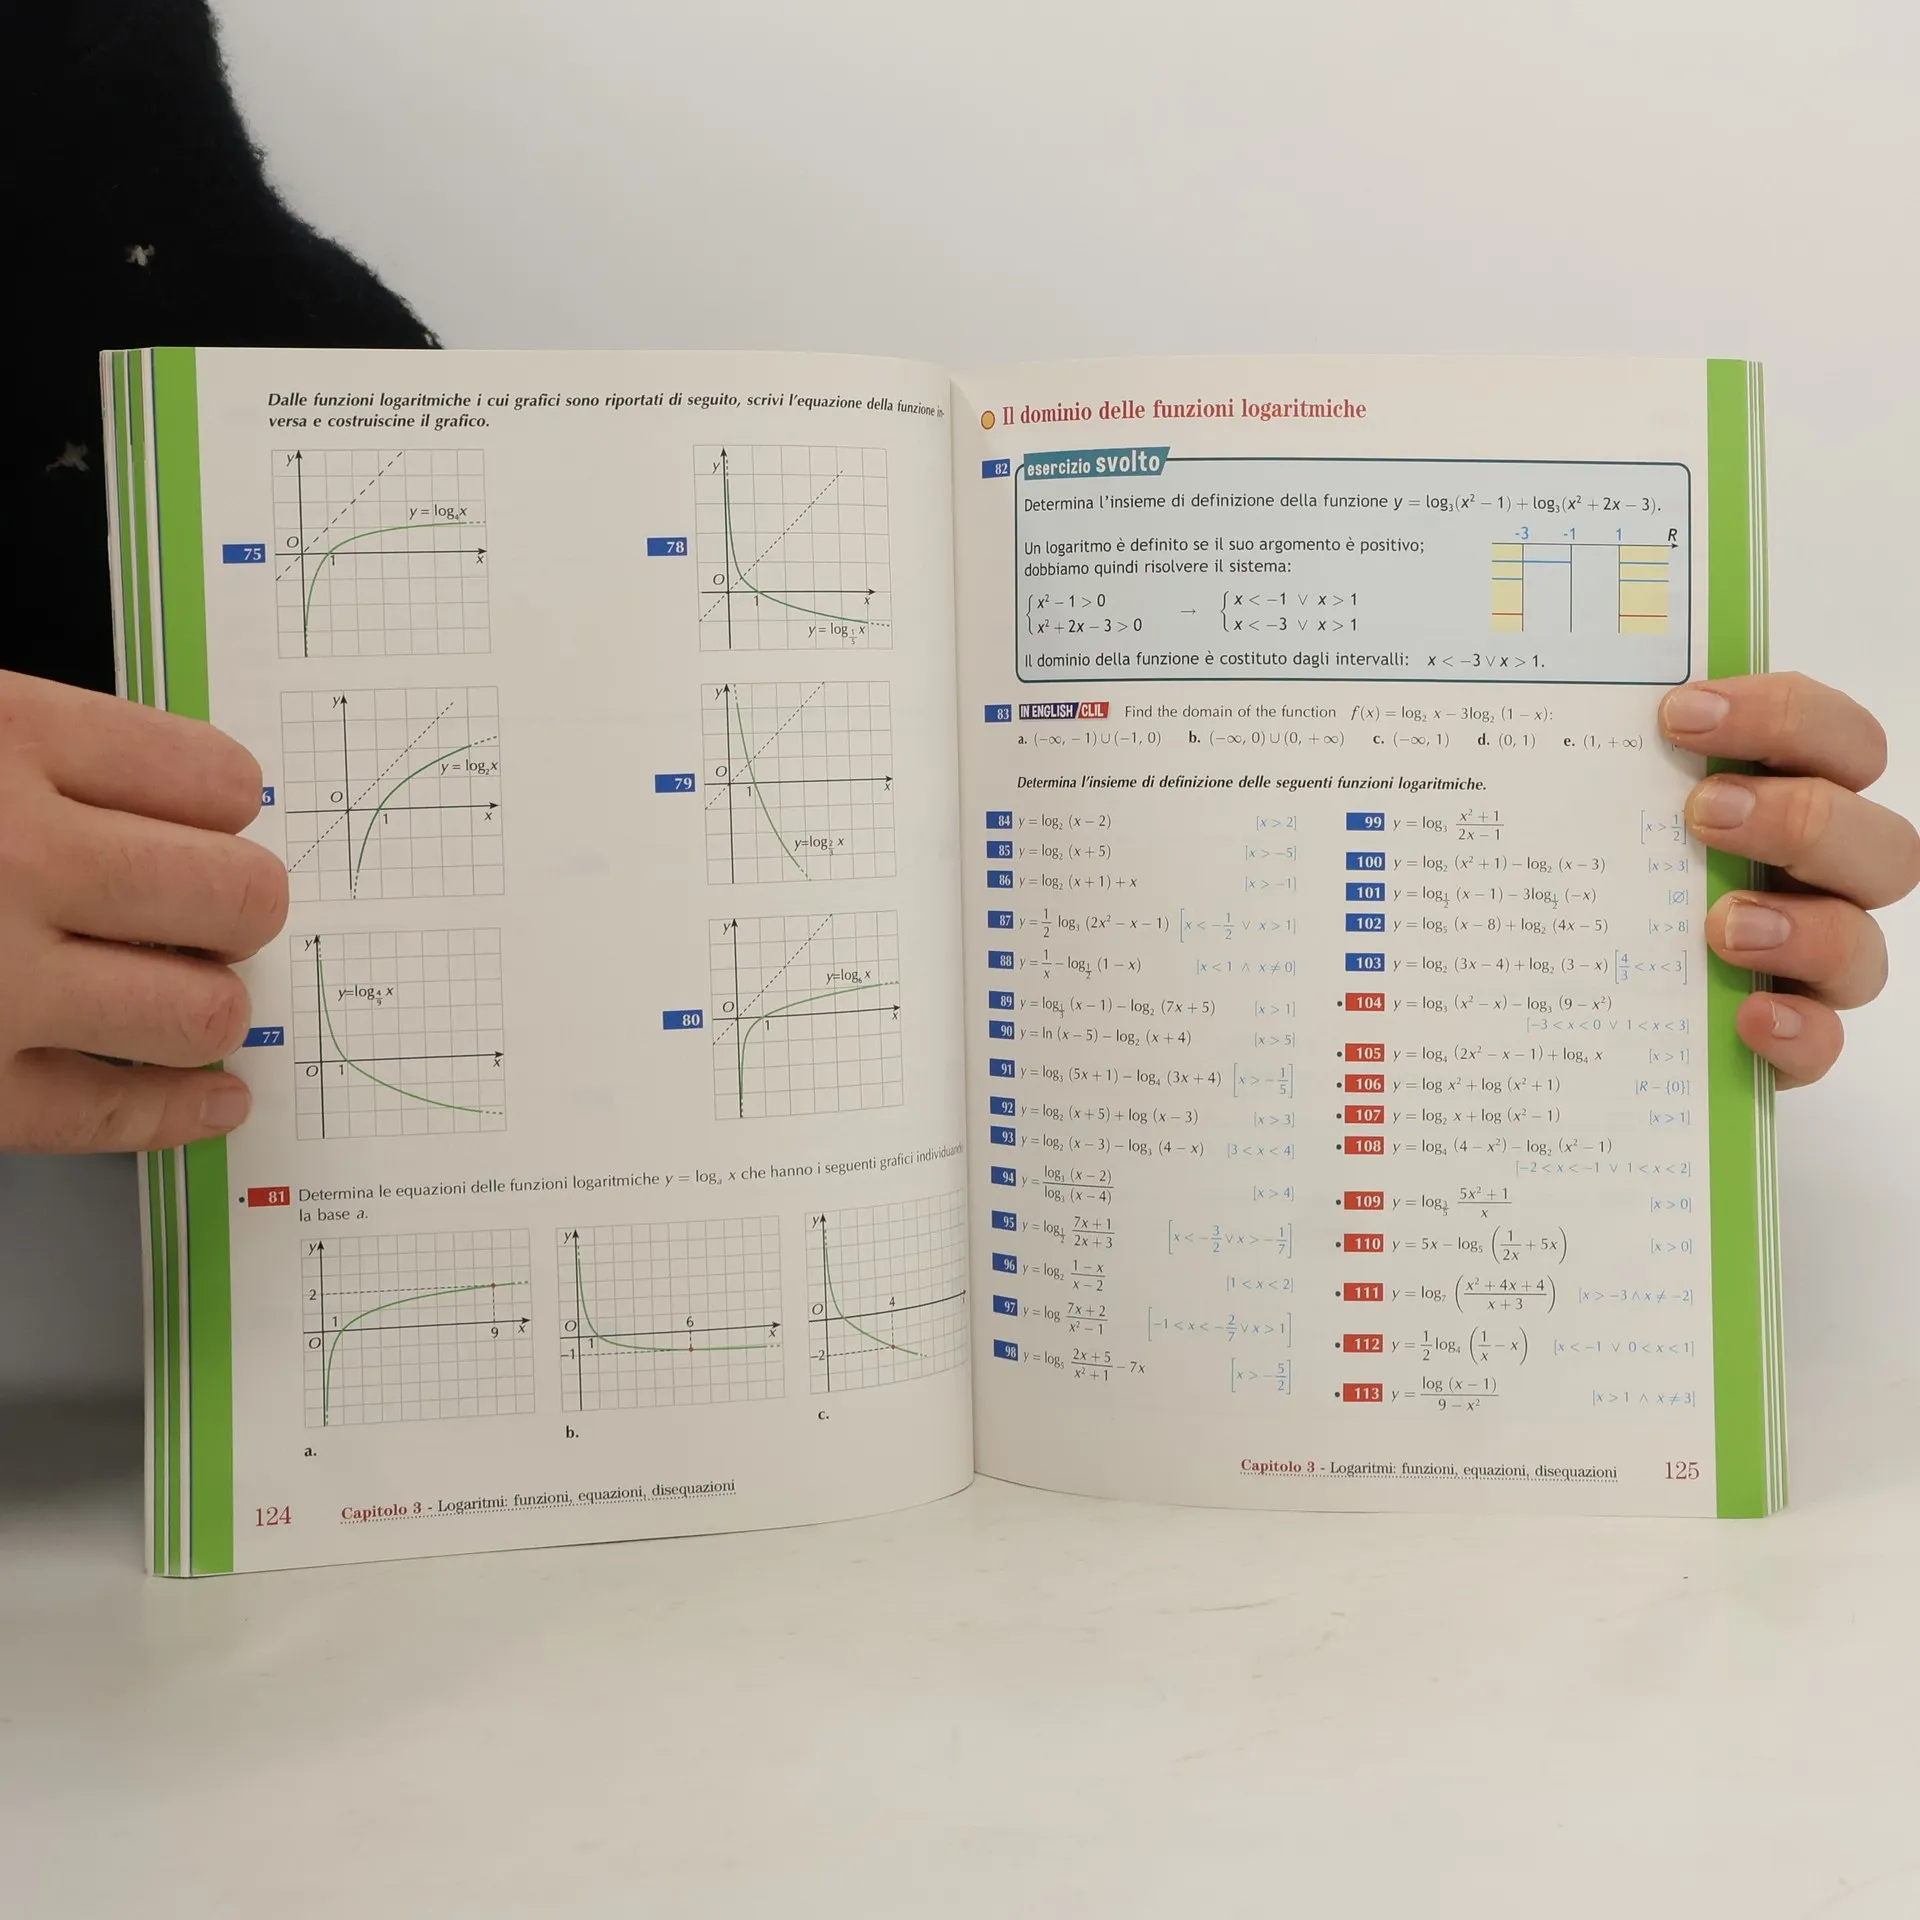 Dalle funzioni logaritmiche i cui grafici sono riportati di seguito, scrivi l'equazione della funzione in-
versa e costruiscine il grafico.
75
y
y = log₄x
O
1
x
78
y
O
1
x
y = log_{1/5} x
6
y
y = log₂x
O
1
x
79
y
O
1
x
y=log_{2/3} x
77
y
y=log_{4/9} x
O
1
x
80
y
y=log₆ x
O
1
x
81 Determina le equazioni delle funzioni logaritmiche y = logₐ x che hanno i seguenti grafici individuando
la base a.
y
2
1
O
9
x
a.
y
O
1
6
x
−1
b.
y
O
4
−2
c.
124
Capitolo 3 - Logaritmi: funzioni, equazioni, disequazioni
Il dominio delle funzioni logaritmiche
82 esercizio svolto
Determina l'insieme di definizione della funzione y = log₃(x² − 1) + log₃(x² + 2x − 3).
Un logaritmo è definito se il suo argomento è positivo;
dobbiamo quindi risolvere il sistema:
-3 -1 1 R
{x² − 1 > 0 → {x < −1 ∨ x > 1
{x² + 2x − 3 > 0 {x < −3 ∨ x > 1
Il dominio della funzione è costituito dagli intervalli: x < −3 ∨ x > 1.
83 IN ENGLISH/CLIL Find the domain of the function f(x) = log₂ x − 3log₂ (1 − x):
a. (−∞, −1)∪(−1, 0) b. (−∞, 0)∪(0, +∞) c. (−∞, 1) d. (0, 1) e. (1, +∞)
Determina l'insieme di definizione delle seguenti funzioni logaritmiche.
84 y = log₂ (x − 2) [x > 2]
85 y = log₂ (x + 5) [x > −5]
86 y = log₂ (x + 1) + x [x > −1]
87 y = 1/2 log₃ (2x² − x − 1) [x < −1/2 ∨ x > 1]
88 y = 1/x − log_{1/2} (1 − x) [x < 1 ∧ x ≠ 0]
89 y = log_{1/3} (x − 1) − log₂ (7x + 5) [x > 1]
90 y = ln (x − 5) − log₂ (x + 4) [x > 5]
91 y = log₃ (5x + 1) − log₄ (3x + 4) [x > −1/5]
92 y = log₂ (x + 5) + log (x − 3) [x > 3]
93 y = log₂ (x − 3) − log₃ (4 − x) [3 < x < 4]
94 y = log₃ (x − 2) / log₃ (x − 4) [x > 4]
95 y = log_{1/2} (7x + 1)/(2x + 3) [x < −3/2 ∨ x > −1/7]
96 y = log₂ (1 − x)/(x − 2) [1 < x < 2]
97 y = log (7x + 2)/(x² − 1) [−1 < x < −2/7 ∨ x > 1]
98 y = log₅ (2x + 5)/(x² + 1) − 7x [x > −5/2]
99 y = log₃ (x² + 1)/(2x − 1) [x > 1/2]
100 y = log₂ (x² + 1) − log₂ (x − 3) [x > 3]
101 y = log_{1/2} (x − 1) − 3log_{1/2} (−x) [∅]
102 y = log₅ (x − 8) + log₂ (4x − 5) [x > 8]
103 y = log₂ (3x − 4) + log₂ (3 − x) [4/3 < x < 3]
104 y = log₃ (x² − x) − log₃ (9 − x²)
[−3 < x < 0 ∨ 1 < x < 3]
105 y = log₄ (2x² − x − 1) + log₄ x [x > 1]
106 y = log x² + log (x² + 1) [R − {0}]
107 y = log₂ x + log (x² − 1) [x > 1]
108 y = log₄ (4 − x²) − log₂ (x² − 1)
[−2 < x < −1 ∨ 1 < x < 2]
109 y = log_{3/5} (5x² + 1)/x [x > 0]
110 y = 5x − log₅ (1/2x + 5x) [x > 0]
111 y = log₇ ((x² + 4x + 4)/(x + 3)) [x > −3 ∧ x ≠ −2]
112 y = 1/2 log₄ (1/x − x) [x < −1 ∨ 0 < x < 1]
113 y = log (x − 1) / (9 − x²) [x > 1 ∧ x ≠ 3]
Capitolo 3 - Logaritmi: funzioni, equazioni, disequazioni 125